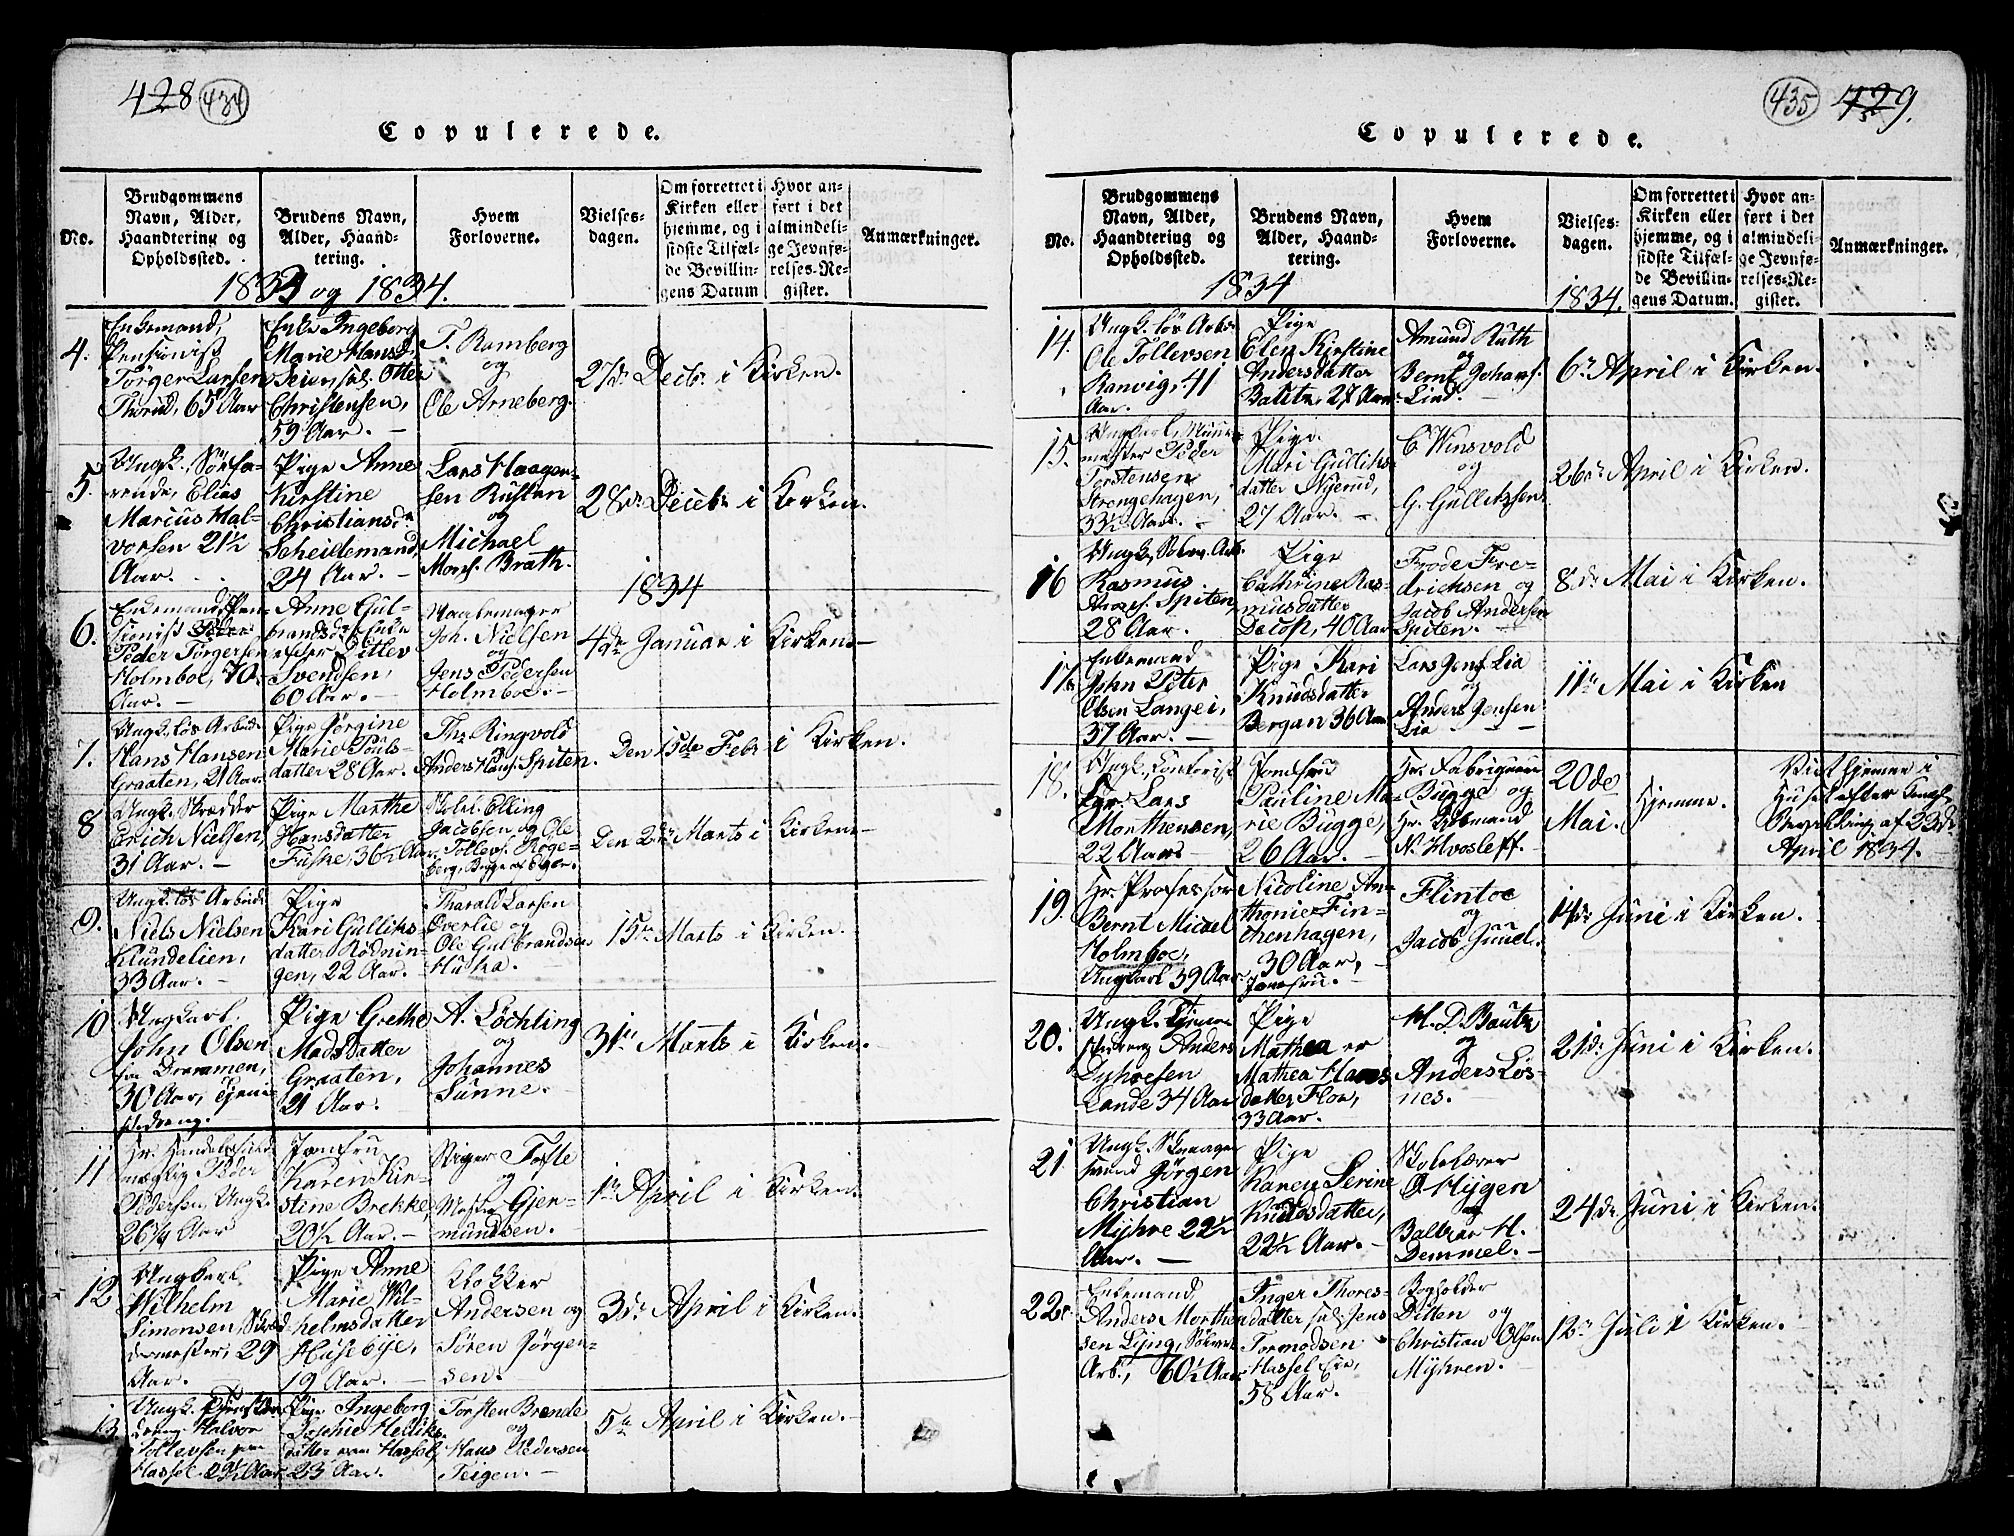 428 434
Copulerede.
No.
Brudgommens
Navn, Alder,
Haandtering og
Opholdssted.
Brudens Navn,
Alder, Haand-
tering.
Hvem
Forloverne.
Vielses-
dagen.
Om forrettet i
Kirken eller
hjemme, og i
sidste Tilfæl-
de Bevillin-
gens Datum
Hvor an-
ført i det
almindeli-
ge Jevnfø-
relses-Re-
gister.
Anmærkninger.
1833 og 1834.
4.
Enkemand,
Pensionist
Törger Larsen
Thorud, 65 Aar
Enke Ingeborg
Marie Hansd.
Seier, sal. Otter
Christensen,
59 Aar. –
T. Ramberg
og
Ole Arneberg.
27de Decbr. i Kirken.
5.
Ungk.
Elias
Marcus Hal-
vorsen 21½
Aar.
Pige Anne
Kirstine
Christiansd.
Scheidemand,
24 Aar. –
Lars Haagen-
sen Rusten
og
Michael
Mons. Brath.
28de Decebr i Kirken.
1834
6.
Enkemand, Pen
sionist Peder
Peder Törgersen
Holmboe, 70
Aar. –
Anne Gul-
brandsdr. Enke
efter Ditlev
Svendsen,
60 Aar. –
Joh. Nielsen
og
Jens Pedersen
Holmboe. –
4de Januar i Kirken –
7.
Ungk. lös Arbeid.
Hans Hansen
Graaten, 21 Aar.
Pige Jörgine
Marie Pouls-
datter 28 Aar.
Ths Ringvold
Anders Hans. Spiten.
Den 15de Febr. i Kirken.
8
Ungk. Skrædder
Erich Nielsen,
31 Aar. –
Pige Marthe
Hansdatter
Fuske, 36½ Aar
Elling
Jacobsen og Ole
Tollevs. Roge-
berg,
Den 2den Marts i Kirken –
9.
Ungk. lös Arbeid.
Niels Nielsen
Klundelien,
33 Aar. –
Pige
Kari Gulliks-
datter Rödnin-
gen, 22 Aar.
Tharald Larsen
Overlie og
Ole Gulbrandsen
Huka. –
15de Marts i Kirken.
10
Ungkarl
John Olsen
fra Drammen,
30 Aar,
Pige Grethe
Madsdatter
Graaten,
21 Aar.
A. Löchling
og
Johannes
Sünne. –
31te Marts i Kirken.
11
Hr.
Peder
Pedersen, Ungk.
26¼ Aar
Jomfru
Karen Kir-
stine Brekke,
20½ Aar. –
Tofte
og
Gjer-
mundsen.
1te April i Kirken.
12
Ungkarl
Wilhelm
Simonsen, Skræd
dermester, 29
Aar.
Pige Anne
Marie Wil-
helmsdatter
Husebye,
19 Aar. –
Klokker
Andersen og
Sören Jörgen-
sen.
3de April i Kirken.
13
Ungk.
Halvor
Tollevsen
Hassel 29½ Aar
Pige Ingeborg
Sophie Helliks
datter Hassel,
23 Aar.
Torsten Brænde
og
Hans Pedersen
Teigen. –
5te April i Kirken –
435 429.
Copulerede.
No.
Brudgommens
Navn, Alder,
Haandtering og
Opholdssted.
Brudens Navn,
Alder, Haand-
tering.
Hvem
Forloverne.
Vielses-
dagen.
Om forrettet i
Kirken eller
hjemme, og i
sidste Tilfæl-
de Bevillin-
gens Datum.
Hvor an-
ført i det
almindeli-
ge Jevnfø-
relses-Re-
gister.
Anmærkninger.
1834
1834.
14.
Ungk. lös Arb.
Ole Tollevsen
Ranvig, 41
Aar.
Pige
Elen Kirstine
Andersdatter
27 Aar
Amund Ruth
og
Bernt Johans.
Lind. –
6te April i Kirken.
15.
Ungkarl, Muur-
mester Peder
Torstensen
Strengehagen,
33½ Aar. –
Pige
Mari Gulliks-
datter Nyerud,
27 Aar. –
C Winsvold
og
G. Gulliksen.
26de April i Kirken.
16
Ungk. Arb.
Rasmus
Spiten,
28 Aar. –
Pige
Cathrine Ras-
musdatter
40 Aar
Frode Fre-
drichsen og
Jacob Andersen
Spiten. –
8de Mai i Kirken.
17.
Enkemand
John Peter
Olsen Lange,
37 Aar. –
Pige Kari
Knudsdatter
Bergan 36 Aar
Lars Jens. Lia
og
Anders Jensen
Lia –
11te Mai i Kirken
18.
Ungk. Contorist
Hr. Lars
Morthensen,
22 Aar
Jomfru
Pauline Ma-
rie Bugge,
26 Aar. –
Hr.
Bugge og
Hr.
N. Hvosleff.
20de
Mai.
Hjemme.
Viet hjemme i
Huset efter
Bevilling af 23de
April 1834.
19.
Hr. Professor
Bernt Michael
Holmboe,
Ungkarl 39 Aar.
Nicoline An-
thonie Fin-
chenhagen,
30 Aar,
Jomfru. –
Flintoe
og
Jacob Juuel.
14de Juni i Kirken.
20.
Ungk.
Anders
Dyhresen
Lande 34 Aar
Pige
Mathea er
Mathea Hans
datter Floe,
33 Aar.
H. D. Bautz
og
Anders Lös-
nes. –
21de Juni i Kirken.
21
Ungk. Skomager
svend Jörgen
Christian
Myhre 22½
Aar. –
Pige
Karen Serine
Knudsdatter,
22½ Aar. –
Skolelærer
O Hygen
og
Balzar H.
Demmel. –
24de Juni i Kirken.
22.
Enkemand
Anders Morthen
sen Ljyng,
Arb., 60½ Aar
Inger Thores-
datter sal. Jens
Tormodsen
Hassel Eie,
58 Aar.
Bogholder
Ditten og
Christian Olsen
Myhren. –
12te Juli i Kirken.